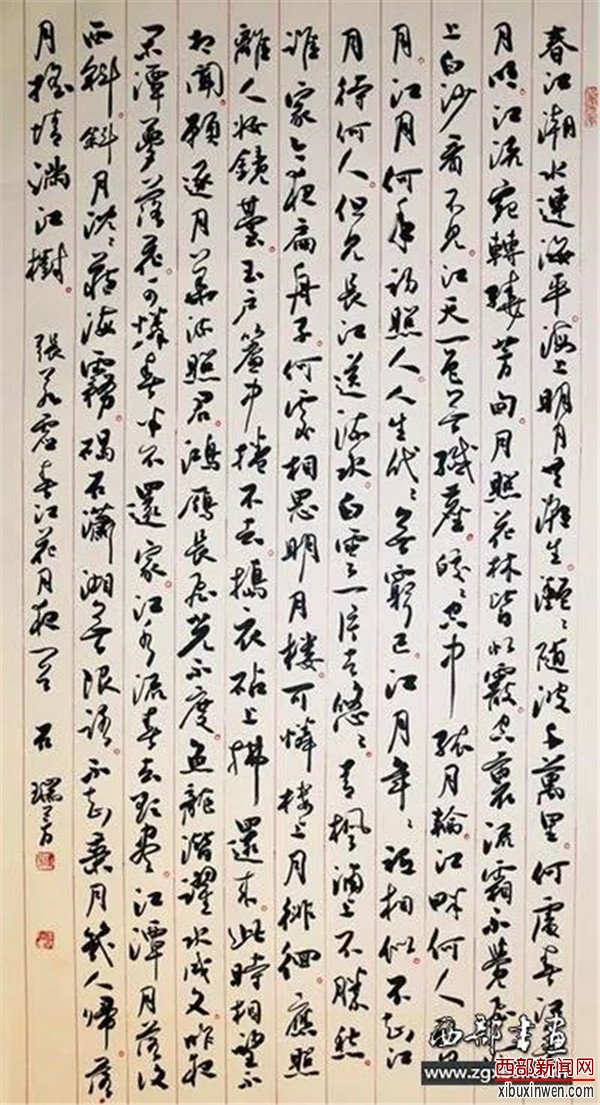 春江潮水連海平海上明月共潮生灩〻随波千萬里何處春江
月明江流宛轉繞芳甸月照花林皆似霰空裏流霜不覺飛
上白沙看不見江天一色無纖塵皎〻空中孤月輪江畔何人
月江月何年初照人人生代〻無窮已江月年〻祗相似不知江
月待何人但見長江送流水白雲一片去悠〻青楓浦上不勝愁
誰家今夜扁舟子何處相思明月樓可憐樓上月徘徊應照
離人妝鏡臺玉戶簾中捲不去搗衣砧上拂還來此時相望不
相聞願逐月華流照君鴻雁長飛光不度魚龍潛躍水成文昨夜
閑潭夢落花可憐春半不還家江水流春去欲盡江潭月落復
西斜斜月沈〻藏海霧碣石瀟湘無限路不知乘月幾人歸落
月搖情滿江樹 張若虛春江花月夜一首 石瑞芳
西部書画
www.zgx
西部新闻网
xibuxinwen.com